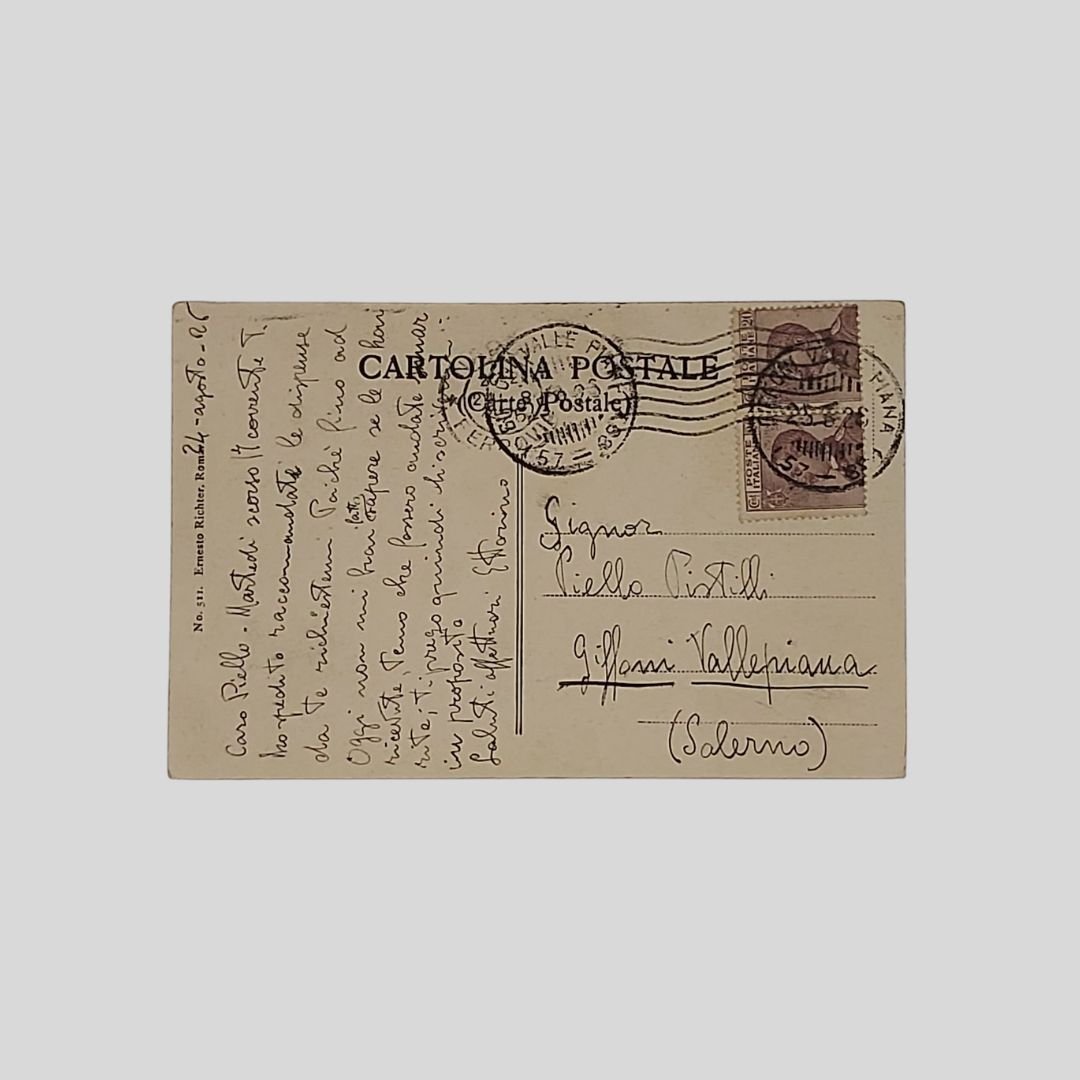 No. 511. Ernesto Richter, Roma
24 - agosto - 26
Caro Piello - Martedì scorso 17 corrente T.
ho spedito raccomandate le dispense
da te richiestemi. Poiché fino ad
Oggi non mi hai fatto sapere se le hai
ricevute, temo che fossero andate smar
rite; ti prego quindi di scrivermi
in proposito
Saluti affettuosi Ettorino
CARTOLINA POSTALE
(Carte Postale)
VALLE PIANA
FERROVIA
57 - 88
POSTE ITALIANE
20
VALLE PIANA
25 8 26
57
Signor
Piello Pistilli
Giffoni Vallepiana
(Salerno)